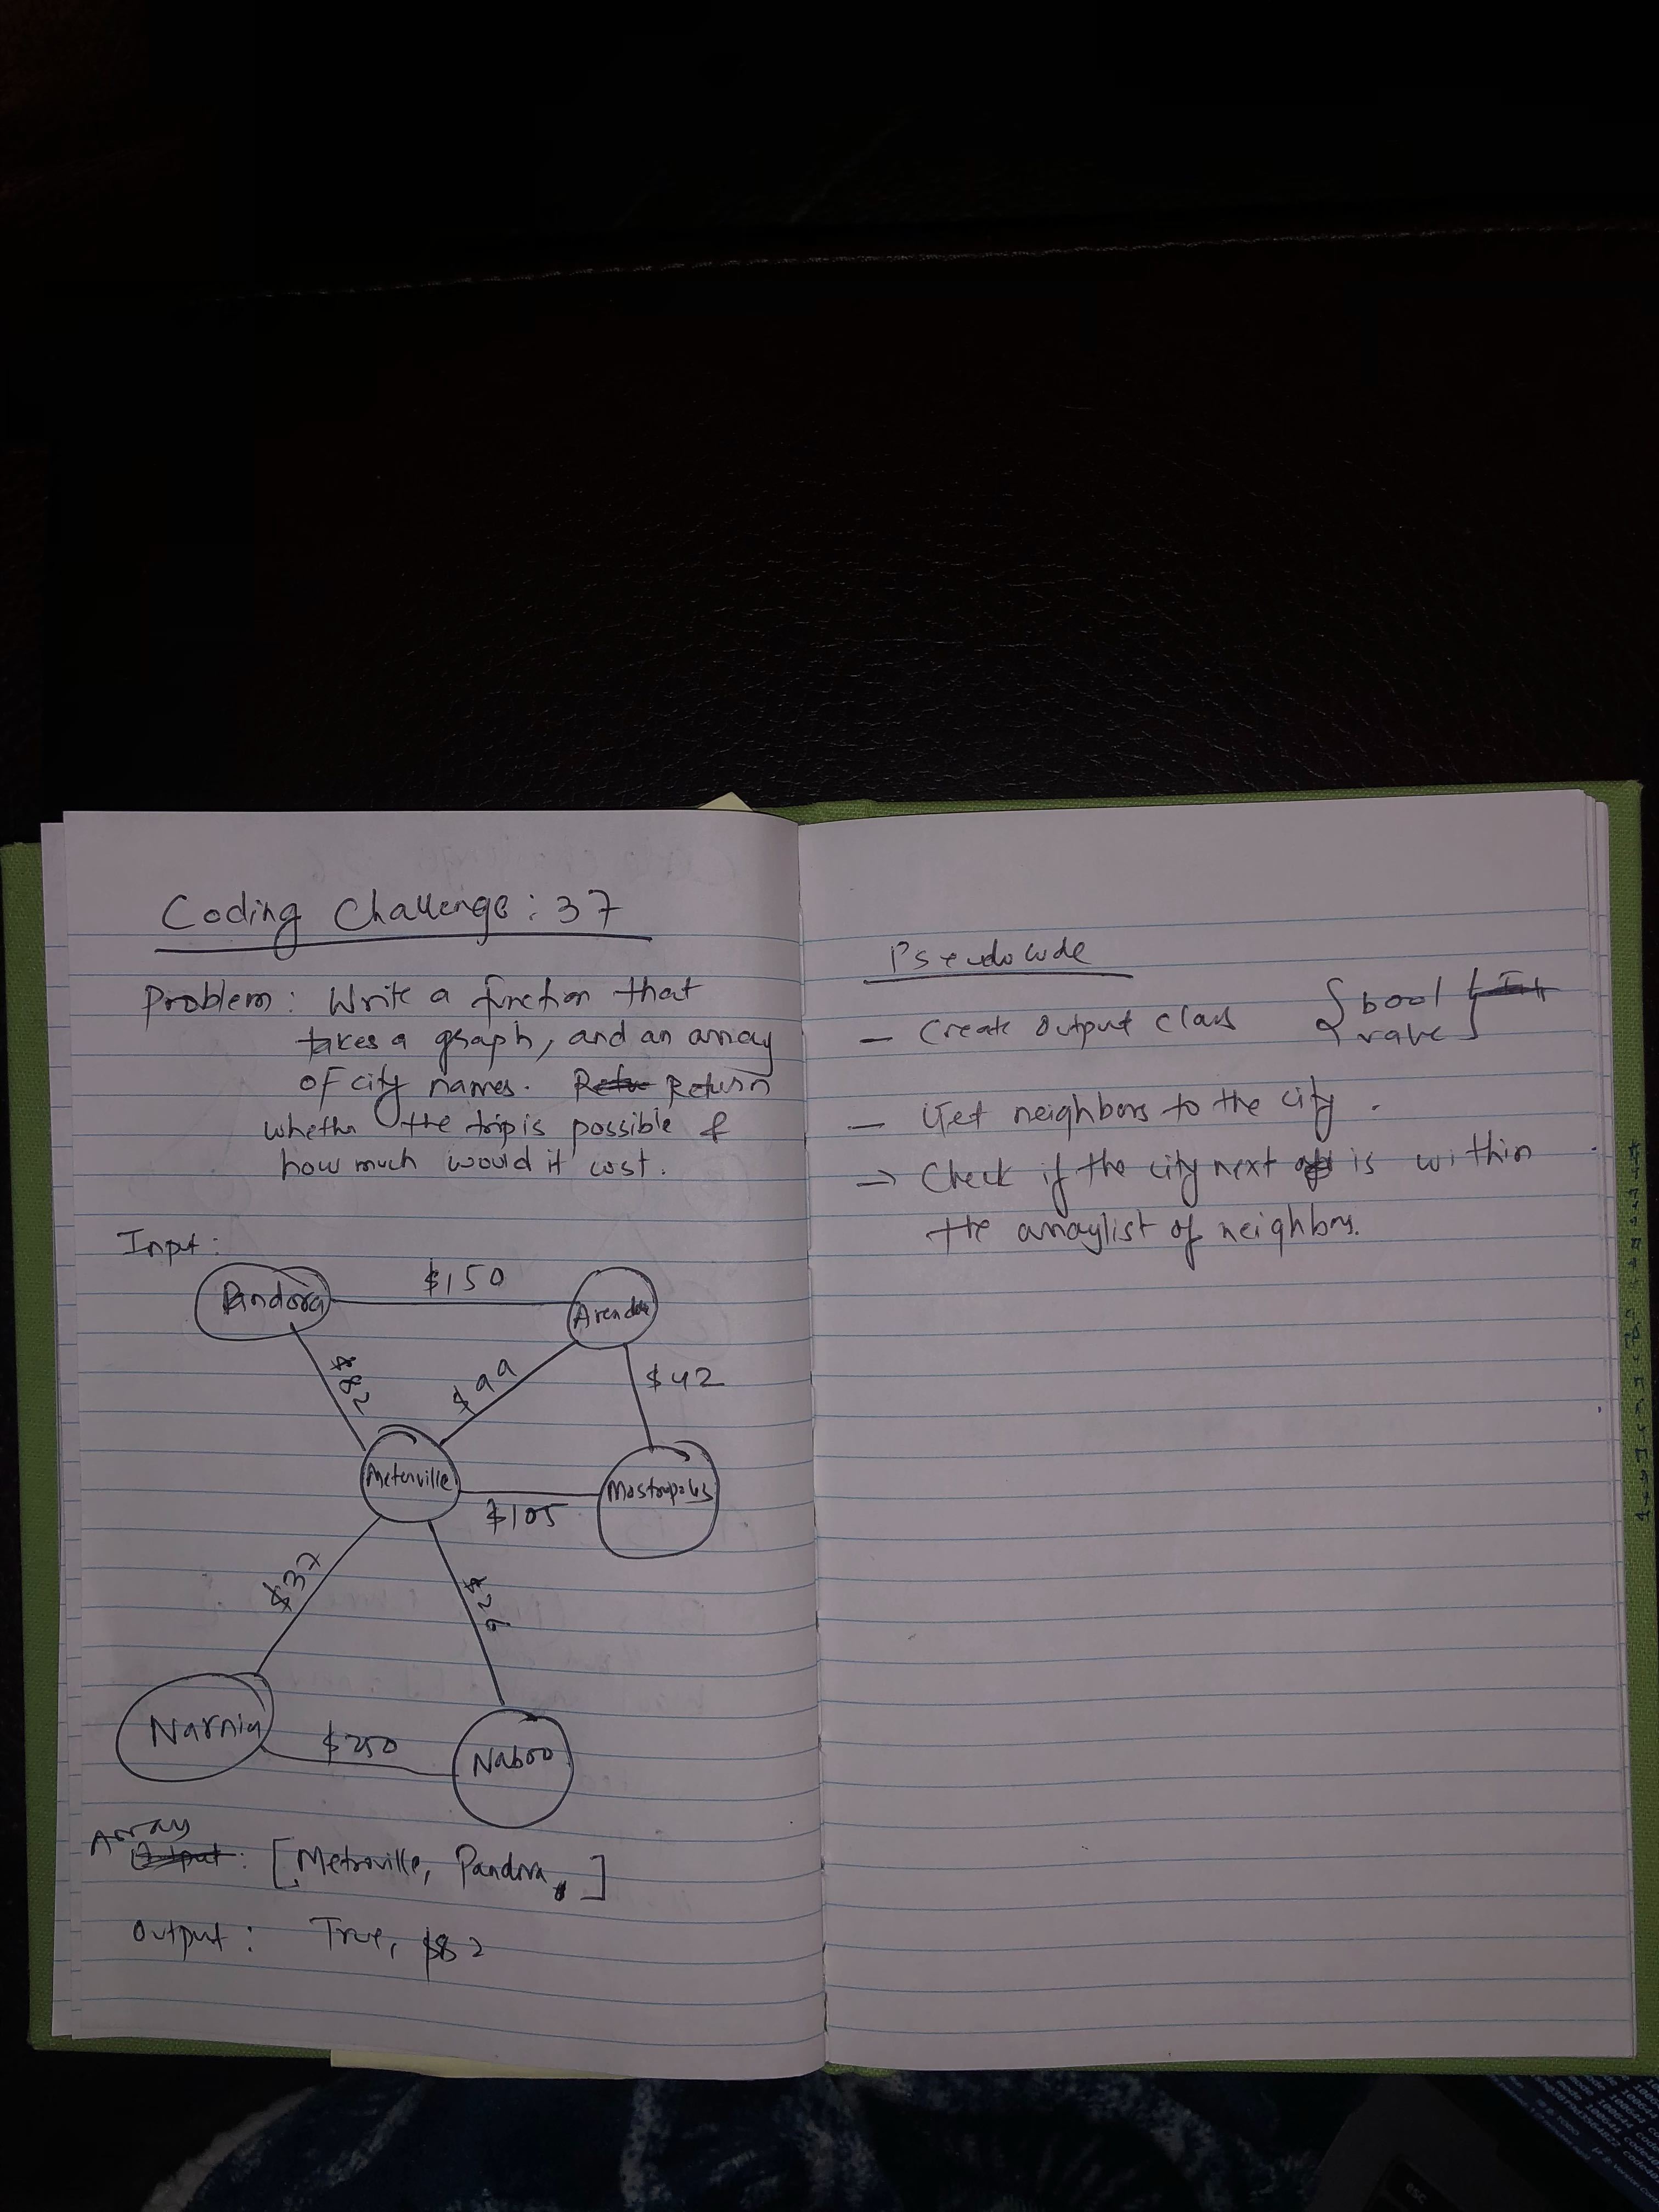 Coding Challenge: 37
Problem: Write a function that
takes a graph, and an array
of city names. Return
whether the trip is possible &
how much would it cost.
Input:
Pandora
$150
$82
$99
$42
$105
Mostropolis
$37
$26
Narnia
$250
Naboo
Array
Output: [Metroville, Pandora, ]
Output: True, $82
Pseudocode
— Create Output class {bool
value}
— Get neighbors to the city.
→ Check if the city next is within
the arraylist of neighbors.